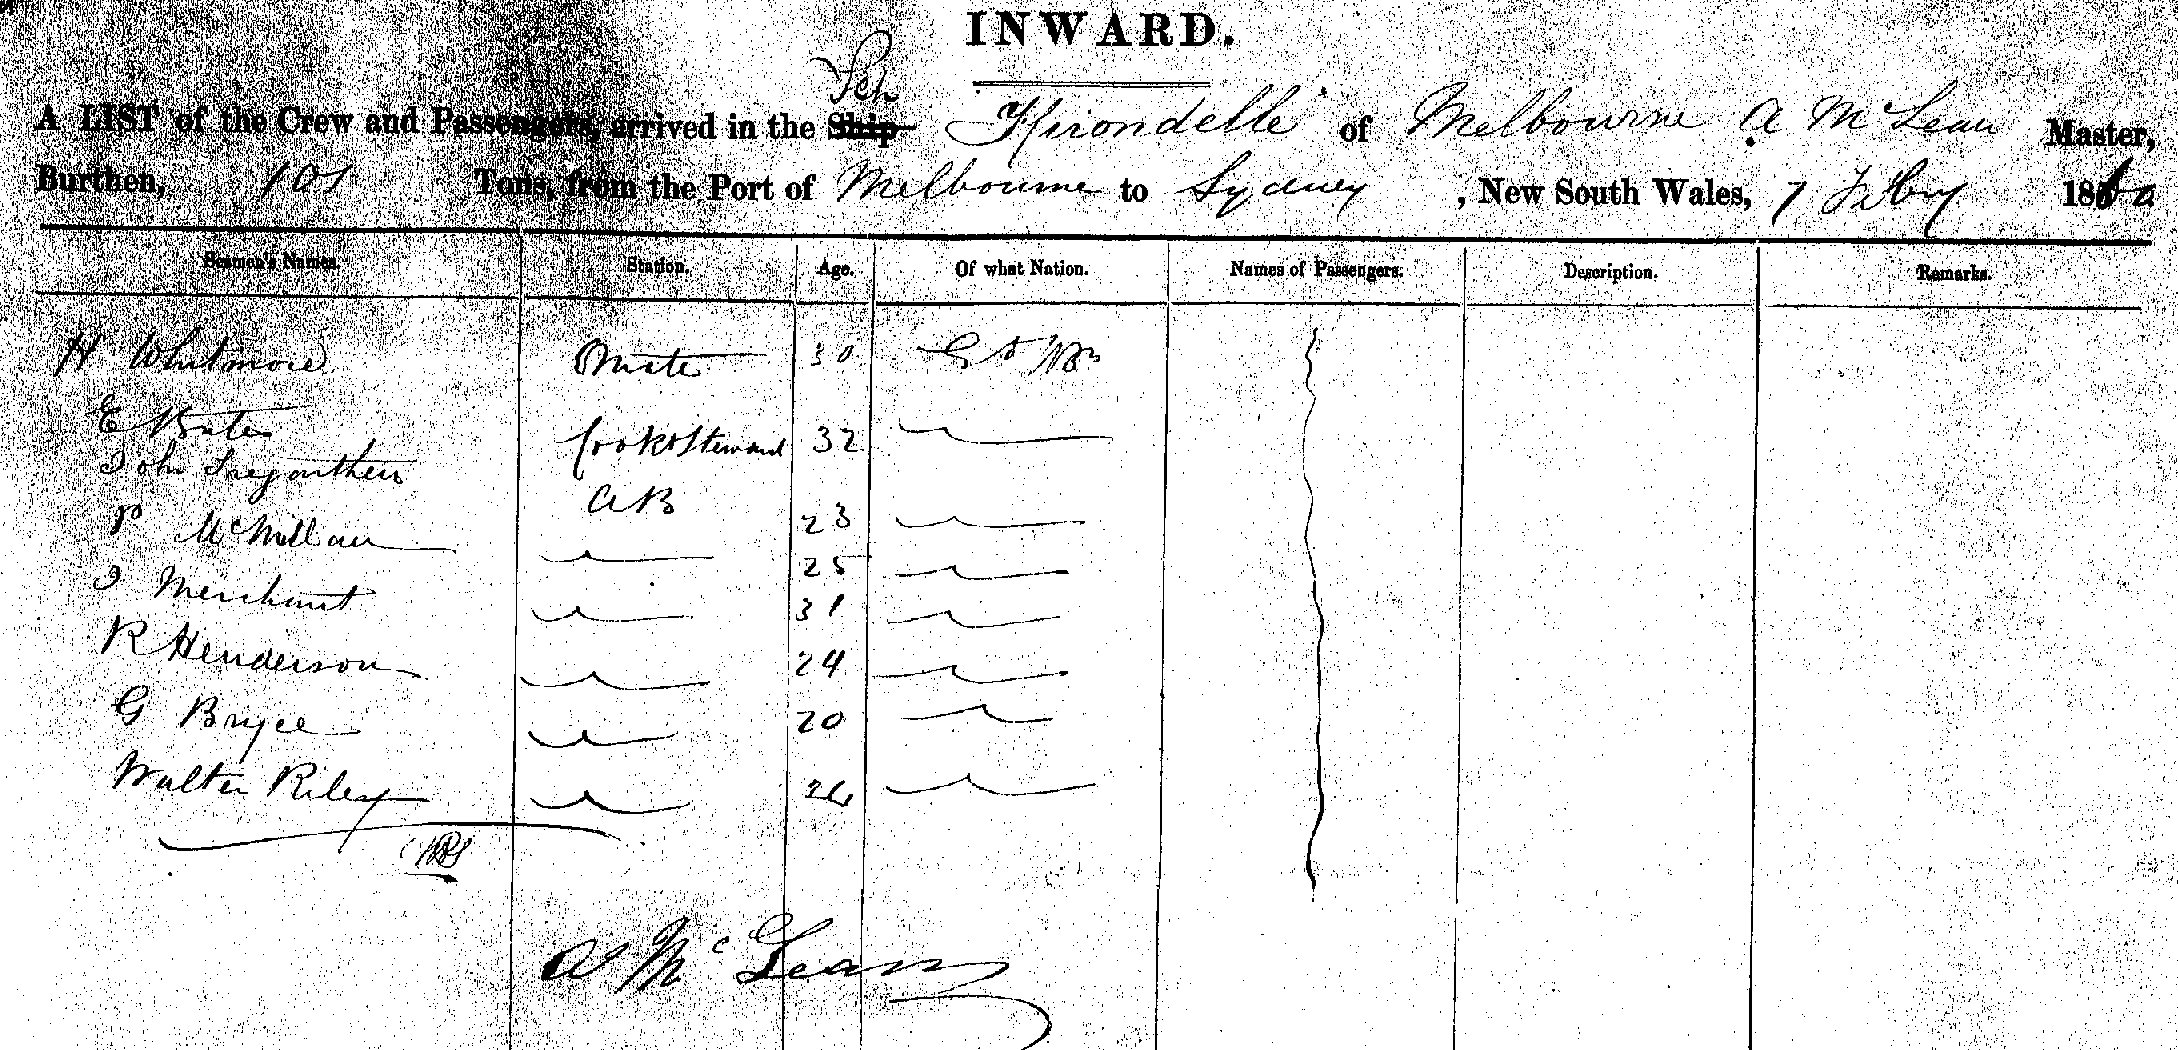 INWARD.
Sch
A LIST of the Crew and Passengers, arrived in the Ship Hirondelle of Melbourne A McLean Master,
Burthen, 101 Tons, from the Port of Melbourne to Sydney, New South Wales, 7 Feby 1860
Seamen's Names. Station. Age. Of what Nation. Names of Passengers. Description. Remarks.
H Whitmore Mate 30
E Bates Cook & Steward 32
John Tregonthen AB 23
P McMillan 25
J Merchant 31
R Henderson 24
G Bryce 20
Walter Riley 26
A McLean